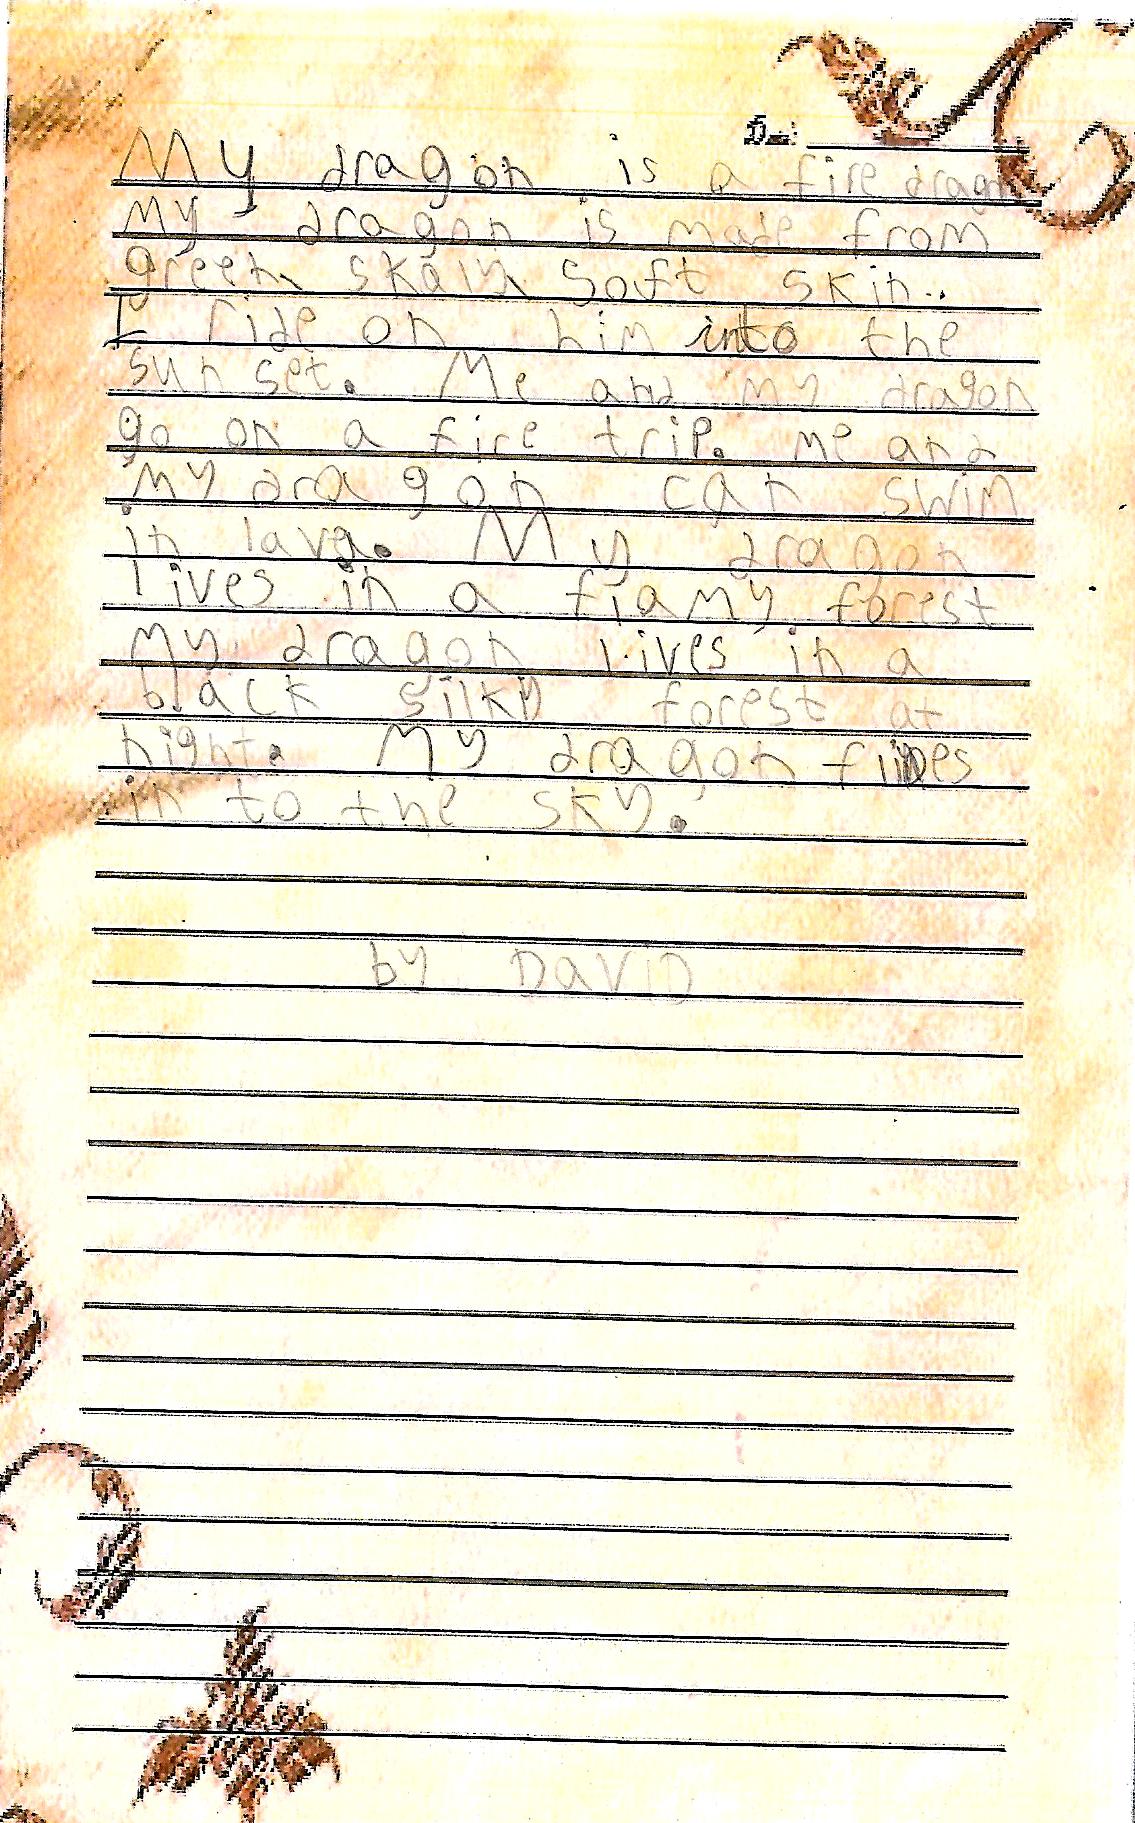 My dragon is a fire dragon
My dragon is made from
green skaly soft skin.
I ride on him into the
sun set. Me and my dragon
go on a fire trip. Me and
My dragon can swim
in lava. My dragon
lives in a flamy forest
My dragon lives in a
black silky forest at
night. My dragon
in to the sky.
by DaviD